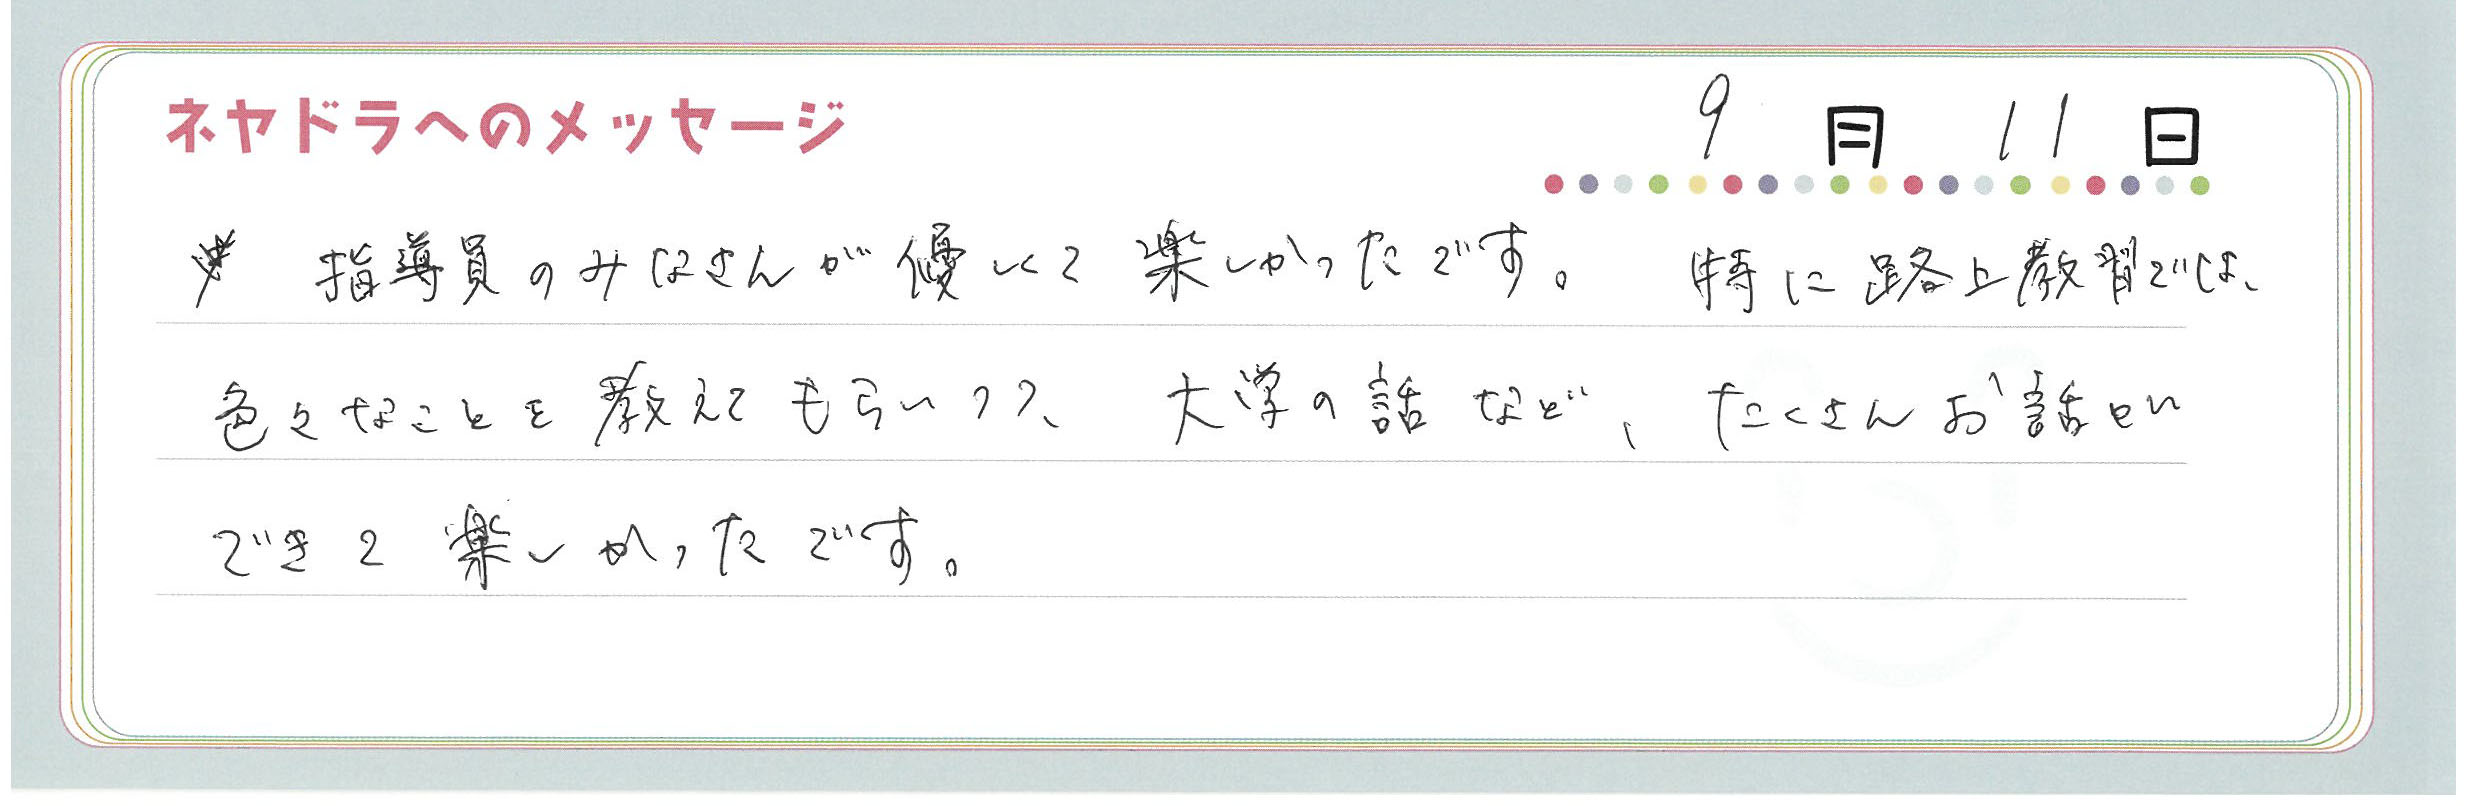 ネヤドラへのメッセージ
9月11日
指導員のみなさんが優しくて楽しかったです。 特に路上教習では、
色々なことを教えてもらいつつ、大学の話など、たくさんお話とい
できて楽しかったです。